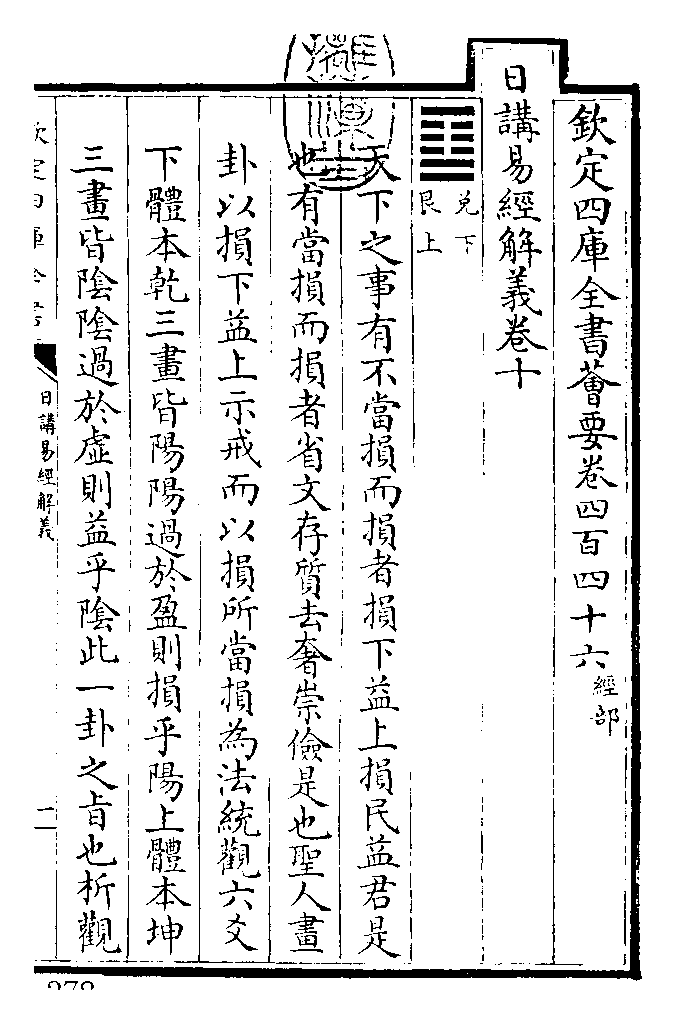 欽定四庫全書薈要卷四百四十六經部
日講易經解義卷十
兌下
艮上
天下之事有不當損而損者損下益上損民益君是
也有當損而損者省文存質去奢崇儉是也聖人畫
卦以損下益上示戒而以損所當損為法統觀六爻
下體本乾三畫皆陽陽過於盈則損乎陽上體本坤
三畫皆陰陰過於虛則益乎陰此一卦之旨也析觀
日講易經解義
一